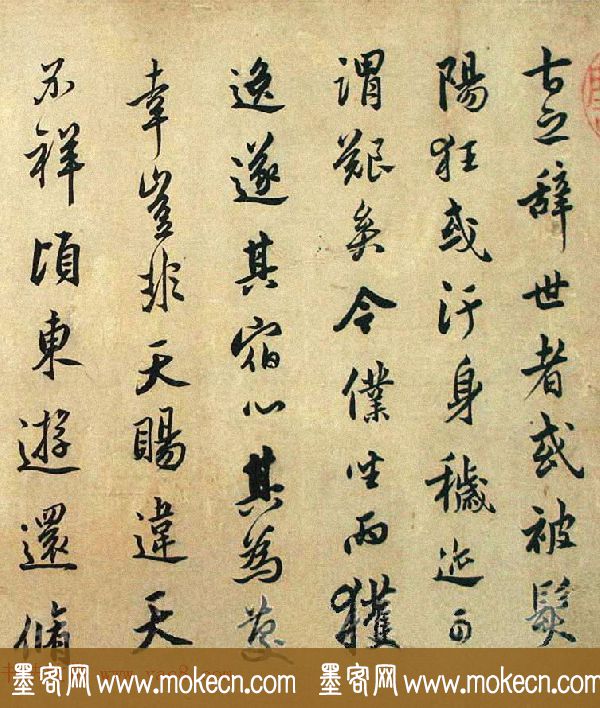 古之辞世者或被髮
陽狂或汙身穢迹可
謂艱矣今僕坐而獲
逸遂其宿心其為慶
幸豈非天賜違天
不祥頃東遊還脩
墨客网 www.mokecn.com 墨客网 www.mokecn.com